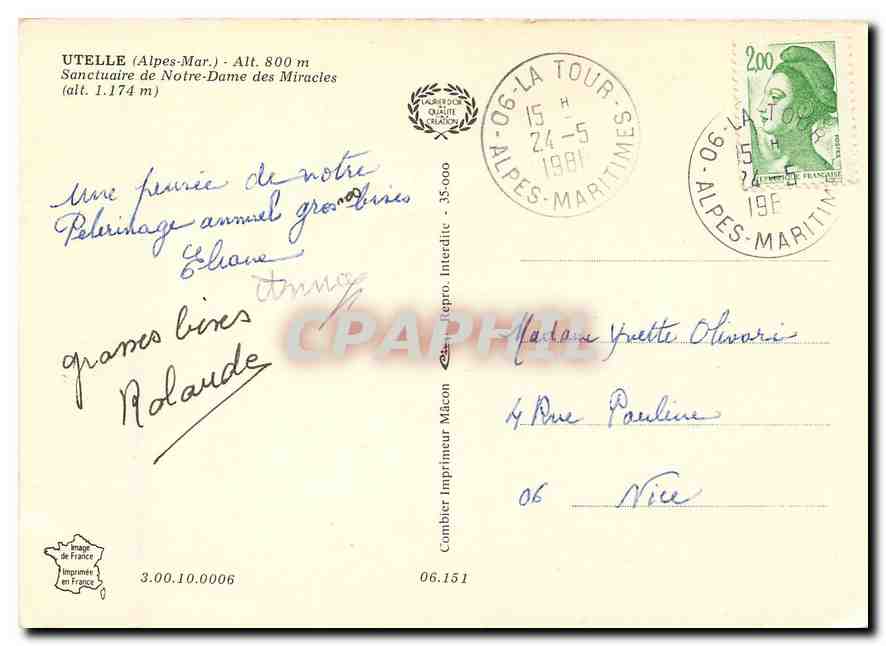 UTELLE (Alpes-Mar.) - Alt. 800 m
Sanctuaire de Notre-Dame des Miracles
(alt. 1.174 m)
LAURIER D'OR
DE LA
QUALITÉ
DE LA
CRÉATION
06-LA TOUR-
15 H
24-5
198
ALPES-MARITIMES
2,00
POSTES
REPUBLIQUE FRANÇAISE
06-LA-TOUR
15 H
24-5
198
ALPES-MARITIM
Une pensée de notre
Pélerinage annuel grosses bises
Eliane
Anna
grosses bises
Rolande
CPAPHIL
Combier Imprimeur Mâcon
Repro. Interdite - 35-000
Madame Yvette Olivari
4 Rue Pauline
06 Nice
Image
de France
Imprimée
en France
3.00.10.0006
06.151